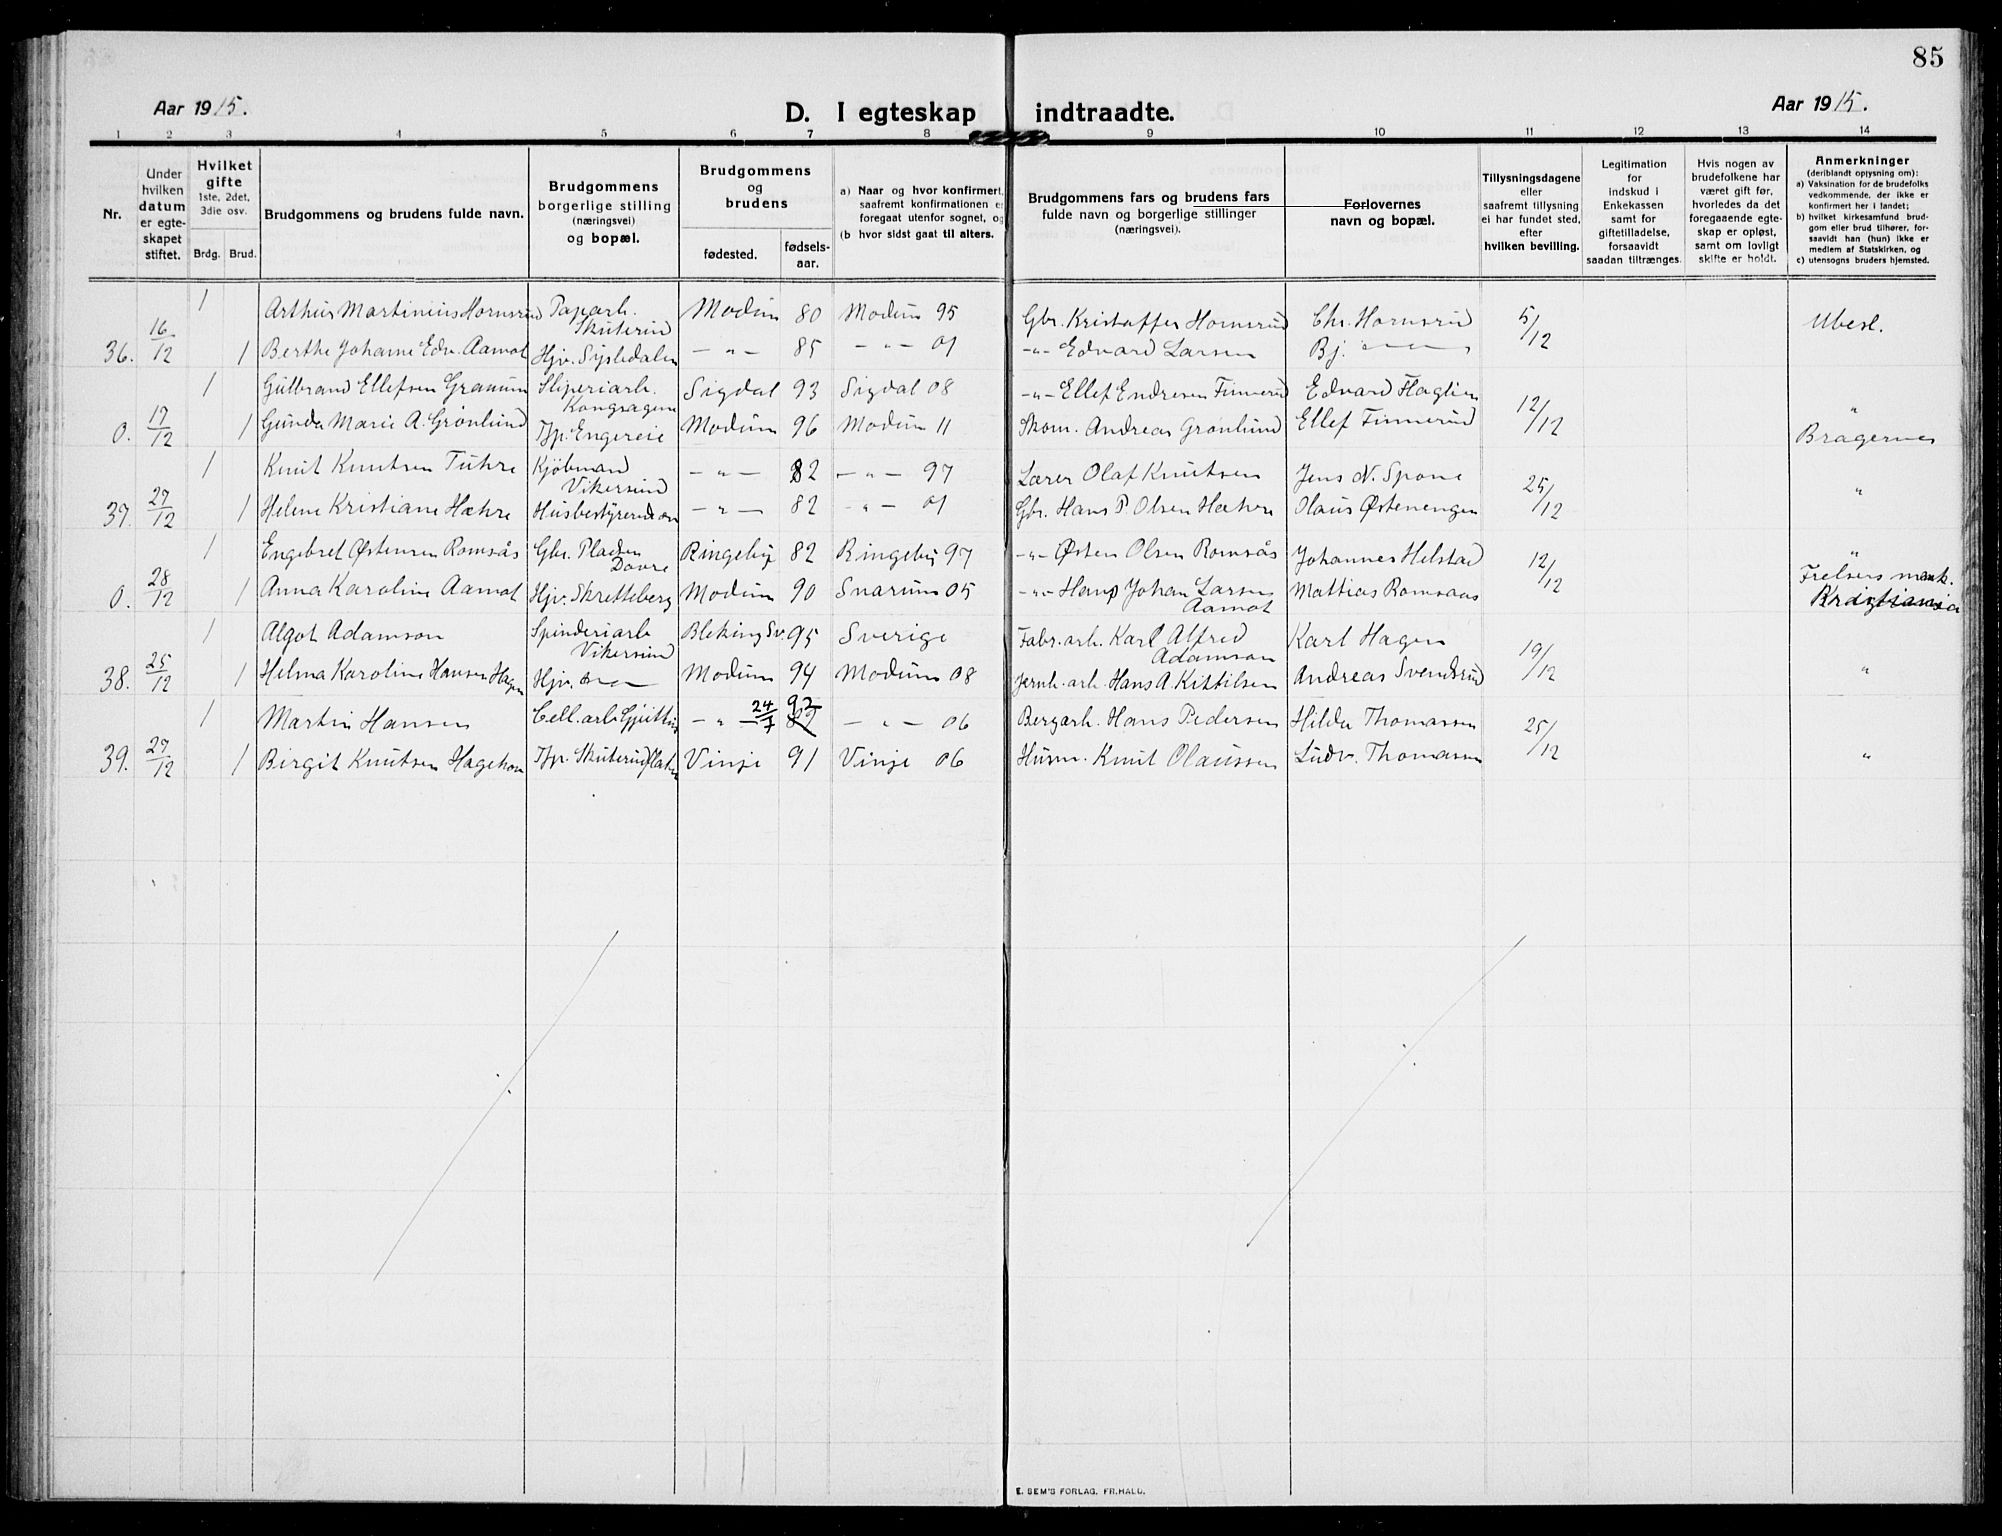 85
Aar 1915.
D. I egteskap indtraadte.
Aar 1915.
1 2 3 4 5 6 7 8 9 10 11 12 13 14
Nr.
Under hvilken datum er egteskapet stiftet.
Hvilket gifte 1ste, 2det, 3die osv.
Brdg. Brud.
Brudgommens og brudens fulde navn.
Brudgommens borgerlige stilling (næringsvei) og bopæl.
Brudgommens og brudens
fødested. fødsels-aar.
a) Naar og hvor konfirmert, saafremt konfirmationen er foregaat utenfor sognet, og
(b hvor sidst gaat til alters.
Brudgommens fars og brudens fars fulde navn og borgerlige stillinger (næringsvei).
Forlovernes navn og bopæl.
Tillysningsdagene eller saafremt tillysning ei har fundet sted, efter hvilken bevilling.
Legitimation for indskud i Enkekassen samt for giftetilladelse, forsaavidt saadan tiltrænges.
Hvis nogen av brudefolkene har været gift før, hvorledes da det foregaaende egteskap er opløst, samt om lovligt skifte er holdt.
Anmerkninger (deriblandt opjysning om):
a) Vaksination for de brudefolks vedkommende, der ikke er konfirmert her i landet;
b) hvilket kirkesamfund brudgom eller brud tilhører, forsaavidt han (hun) ikke er medlem af Statskirken, og
c) utensogns bruders hjemsted.
1 Arthur Martinius Hornsrud Paparb. Skuterud Modum 80 Modum 95 Gbr. Kristoffer Hornsrud Chr. Hornsrud 5/12 Ubesl.
36. 16/12 1 Berthe Johanne Edv. Aamot Hjv. Sysledalen -"- 85 -"- 01 -"- Edvard Larsen Bj. -"-
1 Gulbrand Ellefsen Granum Sliperiarb. Kongsagene Sigdal 93 Sigdal 08 -"- Ellef Endresen Finnerud Edvard Haglien 12/12 "
0. 17/12 1 Gunda Marie A. Grønlund Tjp. Engereie Modum 96 Modum 11 Skom. Andreas Grønlund Ellef Finnerud Bragernes
1 Knut Knutsen Tuhre Kjøbmand Vikersund -"- 82 -"- 97 Lærer Olaf Knutsen Jens N. Spone 25/12 "
37. 27/12 1 Helene Kristiane Hæhre Husbestyrerinde -"- 82 -"- 01 Gbr. Hans P. Olsen Hæhre Olaus Østenengen
1 Engebret Østensen Romsås Gbr. Pladsen Dovre Ringeby 82 Ringeby 97 -"- Østen Olsen Romsås Johannes Helstad 12/12 "
0. 28/12 1 Anna Karoline Aamot Hjv. Skretteberg Modum 90 Snarum 05 -"- Hans Johan Larsen Aamot Mattias Romsaas Frelsers menk. Kristiania
1 Algot Adamson Spinderiarb Vikersund Bleking Sv. 95 Sverige Fabr. arb. Karl Alfred Adamson Karl Hagen 19/12
38. 25/12 1 Helma Karoline Hansen Hagen Hjv. -"- Modum 94 Modum 08 Jernb. arb. Hans A. Kittilsen Andreas Svendsrud "
1 Martin Hansen Cell. arb. -"- 24/7 92 -"- 06 Bergarb. Hans Pedersen Hilda Thomassen 25/12
39. 27/12 1 Birgit Knutsen Tjp. Skuterudflaten Vinje 91 Vinje 06 Husm. Knut Olaussen Ludv. Thomassen "
E. SEM'S FORLAG. FR.HALD.